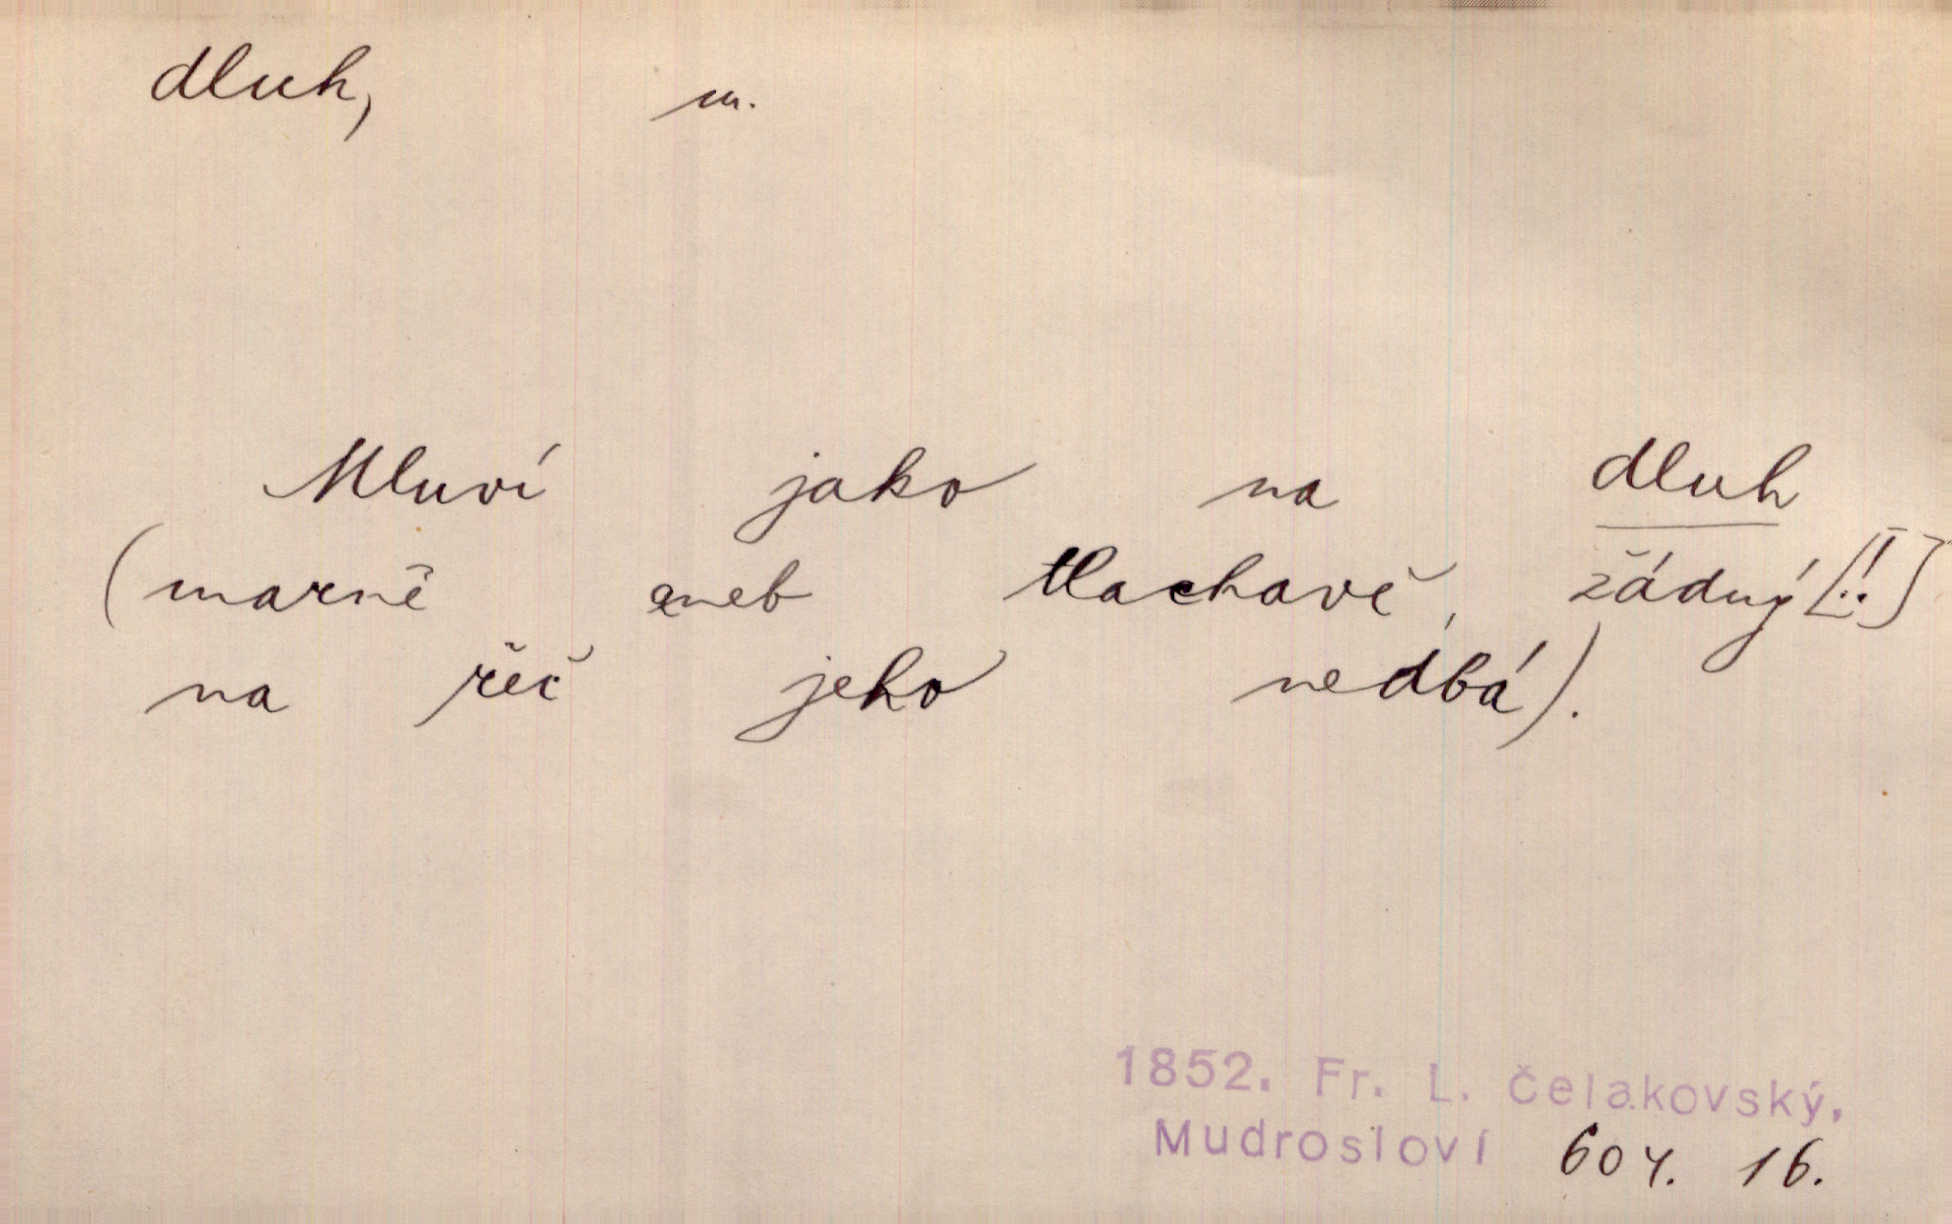 dluh, m.
Mluví jako na dluh
(marně aneb tlachavě, žádný [!!]
na řeč jeho nedbá).
1852. Fr. L. Čelakovský,
Mudrosloví 604. 16.